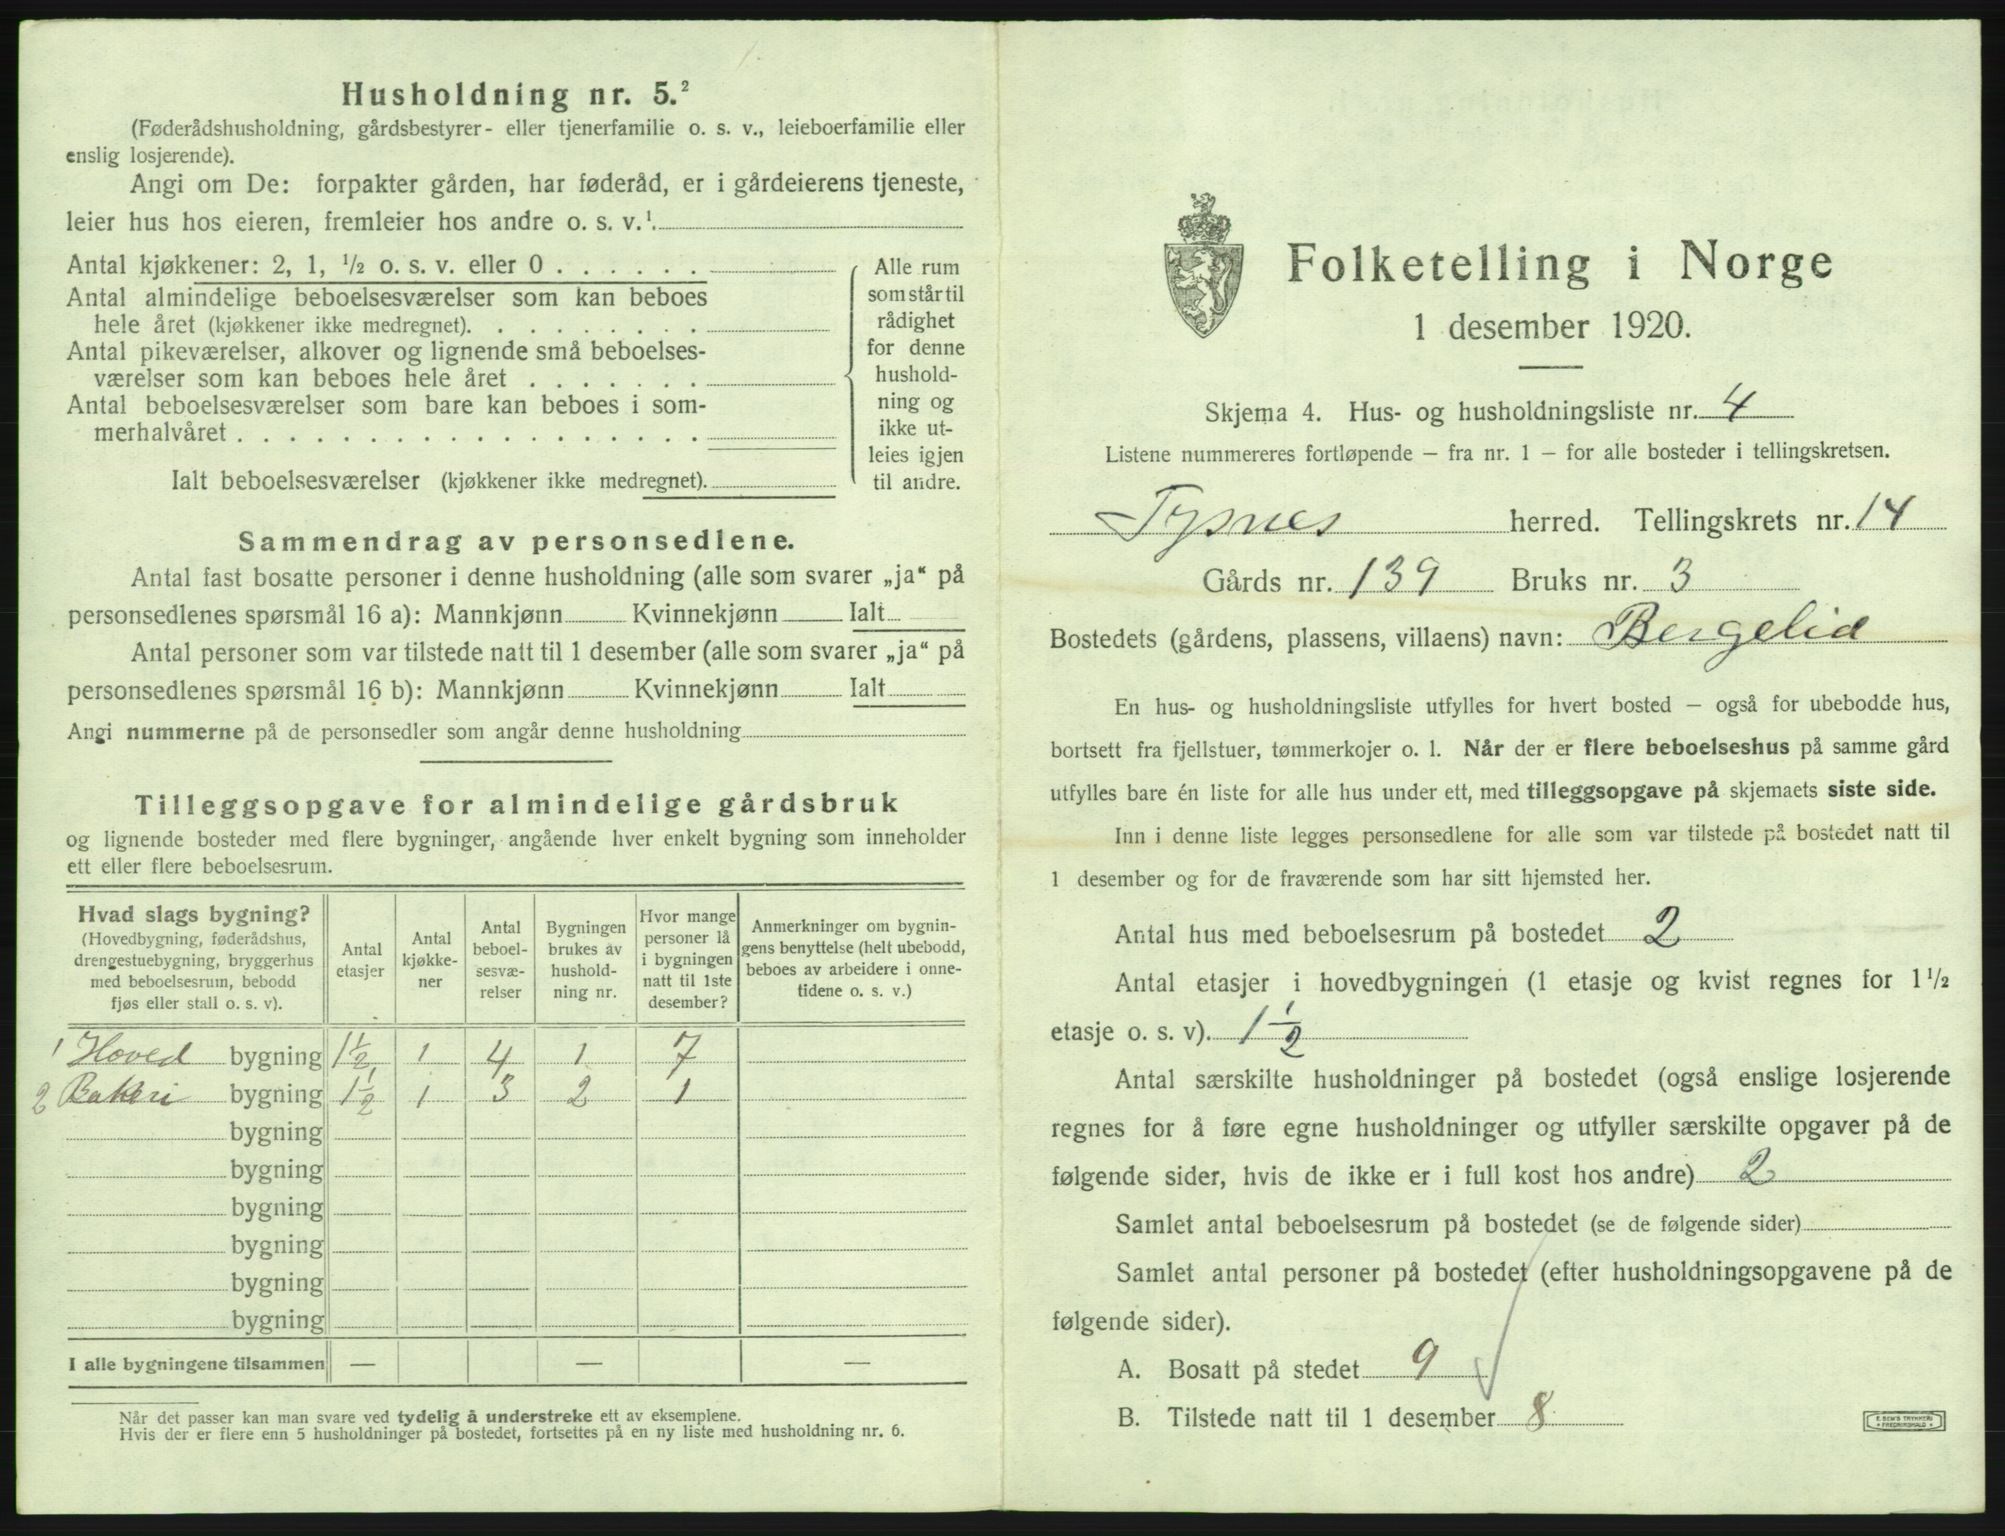 Husholdning nr. 5.²
(Føderådshusholdning, gårdsbestyrer- eller tjenerfamilie o. s. v., leieboerfamilie eller
enslig losjerende).
Angi om De: forpakter gården, har føderåd, er i gårdeierens tjeneste,
leier hus hos eieren, fremleier hos andre o. s. v.¹
Antal kjøkkener: 2, 1, ½ o. s. v. eller 0 . . . . . .
Antal almindelige beboelsesværelser som kan beboes
hele året (kjøkkener ikke medregnet). . . . . . . . .
Antal pikeværelser, alkover og lignende små beboelses-
værelser som kan beboes hele året . . . . . . .
Antal beboelsesværelser som bare kan beboes i som-
merhalvåret . . . . . . . . . . . . . . . . . .
Ialt beboelsesværelser (kjøkkener ikke medregnet).
Alle rum
som står til
rådighet
for denne
hushold-
ning og
ikke ut-
leies igjen
til andre.
Sammendrag av personsedlene.
Antal fast bosatte personer i denne husholdning (alle som svarer „ja“ på
personsedlenes spørsmål 16 a): Mannkjønn Kvinnekjønn Ialt
Antal personer som var tilstede natt til 1 desember (alle som svarer „ja“ på
personsedlenes spørsmål 16 b): Mannkjønn Kvinnekjønn Ialt
Angi nummerne på de personsedler som angår denne husholdning
Tilleggsopgave for almindelige gårdsbruk
og lignende bosteder med flere bygninger, angående hver enkelt bygning som inneholder
ett eller flere beboelsesrum.
Hvad slags bygning?
(Hovedbygning, føderådshus,
drengestuebygning, bryggerhus
med beboelsesrum, bebodd
fjøs eller stall o. s. v).
Antal
etasjer
Antal
kjøkke-
ner
Antal
beboel-
sesvæ-
relser
Bygningen
brukes av
hushold-
ning nr.
Hvor mange
personer lå
i bygningen
natt til 1ste
desember?
Anmerkninger om bygnin-
gens benyttelse (helt ubebodd,
beboes av arbeidere i onne-
tidene o. s. v.)
1 Hoved bygning 1½ 1 4 1 7
2 Bakeri bygning 1½ 1 3 2 1
bygning
bygning
bygning
bygning
bygning
bygning
I alle bygningene tilsammen — — —
Når det passer kan man svare ved tydelig å understreke ett av eksemplene.
Hvis der er flere enn 5 husholdninger på bostedet, fortsettes på en ny liste med husholdning nr. 6.
Folketelling i Norge
1 desember 1920.
Skjema 4. Hus- og husholdningsliste nr. 4
Listene nummereres fortløpende — fra nr. 1 — for alle bosteder i tellingskretsen.
Tysnes herred. Tellingskrets nr. 14
Gårds nr. 139 Bruks nr. 3
Bostedets (gårdens, plassens, villaens) navn: Bergelid
En hus- og husholdningsliste utfylles for hvert bosted — også for ubebodde hus,
bortsett fra fjellstuer, tømmerkojer o. l. Når der er flere beboelseshus på samme gård
utfylles bare én liste for alle hus under ett, med tilleggsopgave på skjemaets siste side.
Inn i denne liste legges personsedlene for alle som var tilstede på bostedet natt til
1 desember og for de fraværende som har sitt hjemsted her.
Antal hus med beboelsesrum på bostedet 2
Antal etasjer i hovedbygningen (1 etasje og kvist regnes for 1½
etasje o. s. v). 1½
Antal særskilte husholdninger på bostedet (også enslige losjerende
regnes for å føre egne husholdninger og utfyller særskilte opgaver på de
følgende sider, hvis de ikke er i full kost hos andre) 2
Samlet antal beboelsesrum på bostedet (se de følgende sider)
Samlet antal personer på bostedet (efter husholdningsopgavene på de
følgende sider).
A. Bosatt på stedet 9
B. Tilstede natt til 1 desember 8
E. SEM'S TRYKKERI
FREDRIKSHALD